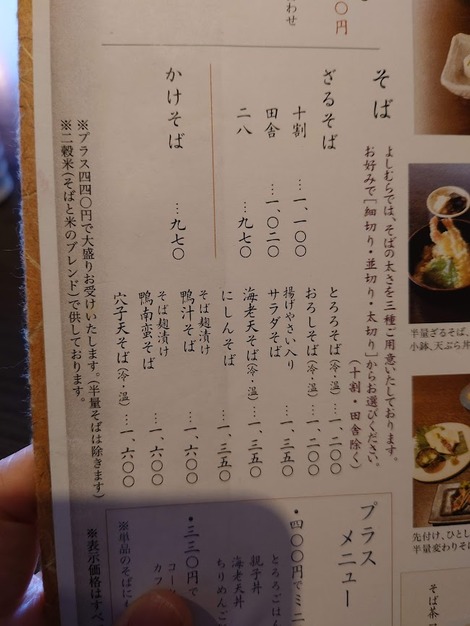 そば
よしむらでは、そばの太さを三種ご用意いたしております。
お好みで［細切り・並切り・太切り］からお選びください。
（十割・田舎除く）
ざるそば
十割 …一、一〇〇
田舎 …一、〇二〇
二八 …九七〇
かけそば …九七〇
とろろそば（冷・温）…一、二〇〇
おろしそば（冷・温）…一、二〇〇
揚げやさい入り
サラダそば …一、三五〇
海老天そば（冷・温）…一、三五〇
にしんそば …一、三五〇
そば麹漬け
鴨汁そば …一、六〇〇
そば麹漬け
鴨南蛮そば …一、六〇〇
穴子天そば（冷・温）…一、六〇〇
※プラス四四〇円で大盛りお受けいたします。（半量そばは除きます）
※二穀米（そばと米のブレンド）で供しております。
プラス
メニュー
・四〇〇円でミニ
とろろごはん
親子丼
海老天丼
ちりめんご
・三三〇円で
コー
カフ
※単品のそばに
※表示価格はすべ
〇円
わせ
半量ざるそば、
小鉢、天ぷら丼
先付け、ひとし
半量変わりそば
そば茶